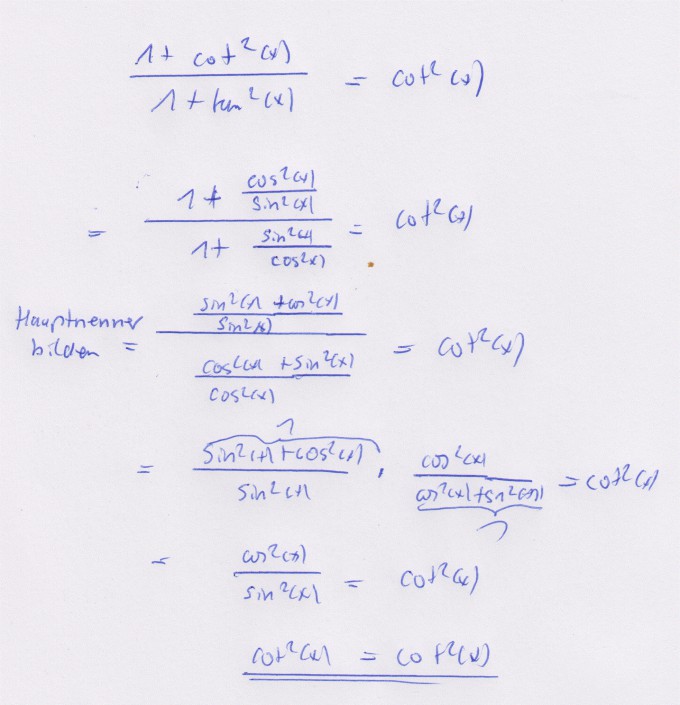 1 + cot²(x) / 1 + tan²(x) = cot²(x)
= 1 + cos²(x)/sin²(x) / 1 + sin²(x)/cos²(x) = cot²(x)
Hauptnenner
bilden = sin²(x) + cos²(x) / sin²(x) / cos²(x) + sin²(x) / cos²(x) = cot²(x)
1
= sin²(x) + cos²(x) / sin²(x) · cos²(x) / cos²(x) + sin²(x) = cot²(x)
1
= cos²(x) / sin²(x) = cot²(x)
cot²(x) = cot²(x)